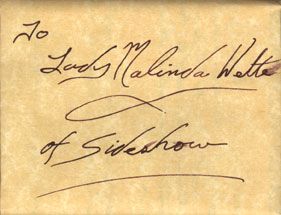 To
Lady Malinda Wette
of Sideshow